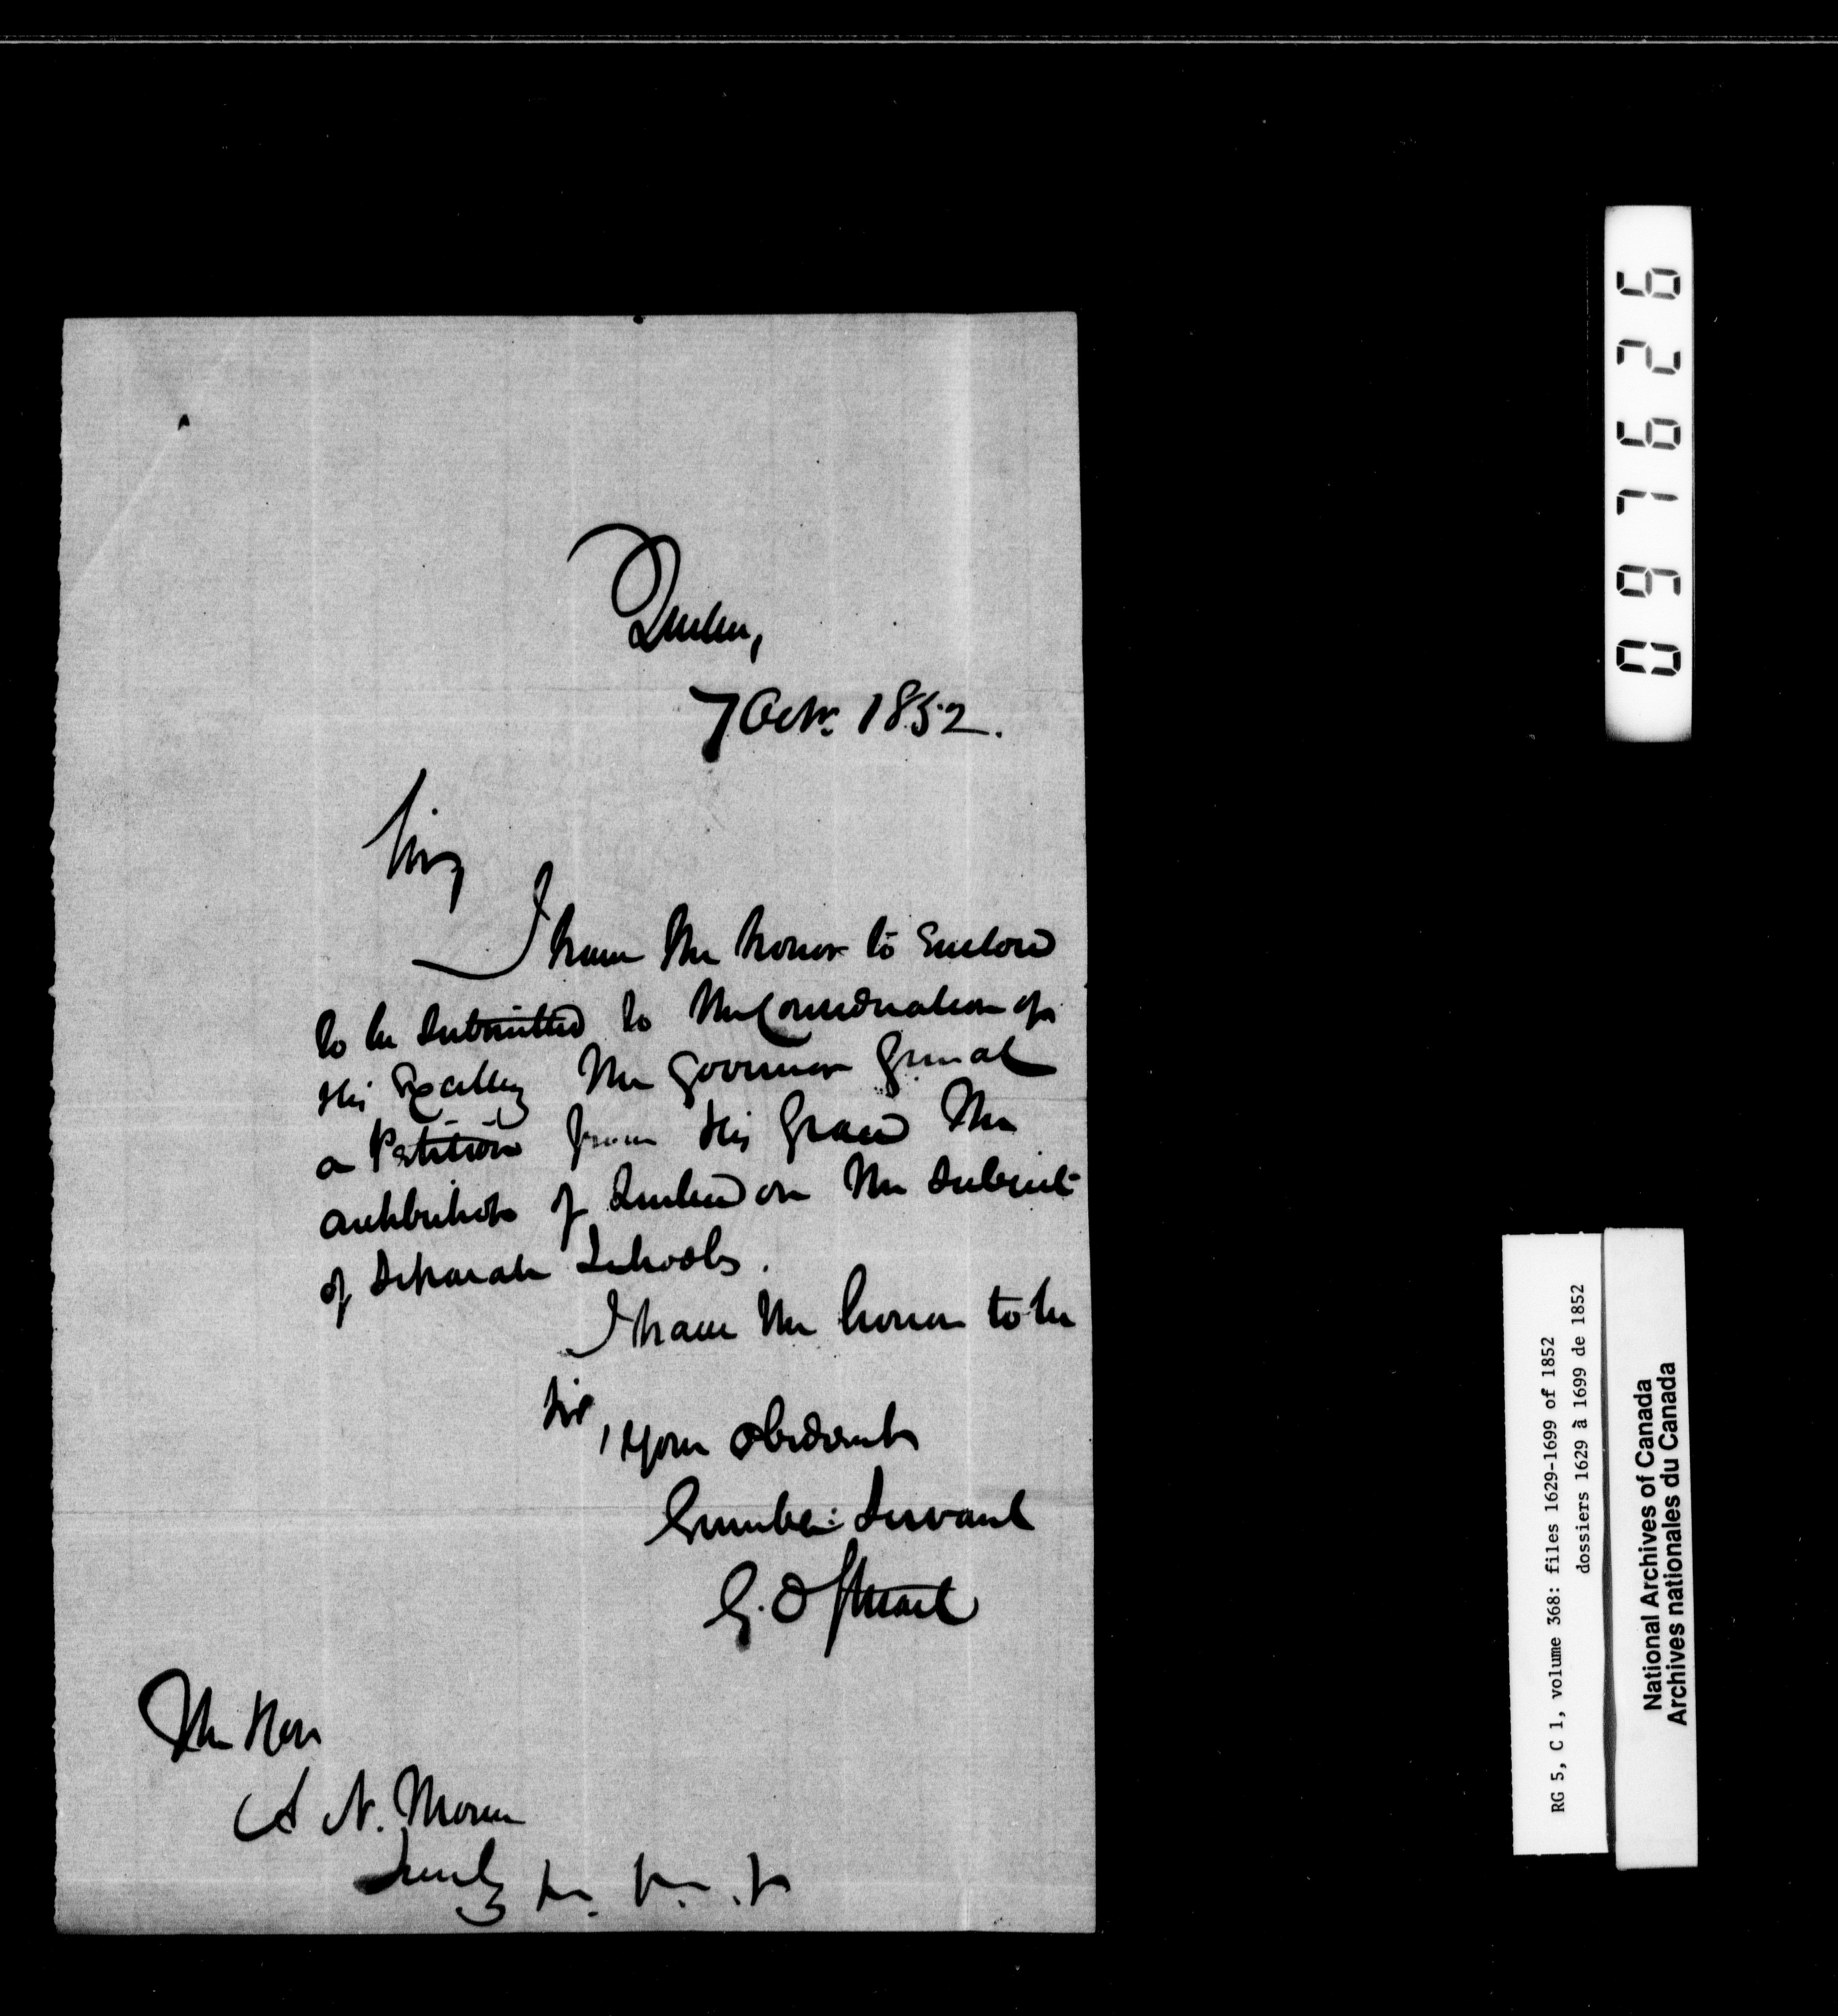 Quebec,
7 Octr. 1852.
Sir,
I have the honor to enclose
to be submitted to the Consideration of
His Excelley the Governor General
a Petition from His Grace the
archbishop of Quebec on the subject
of separate Schools.
I have the honor to be
Sir,
Your obedient
humble: Servant
G. O Stuart
The Hon
A N. Morin
Secrety &c. &c. &c
097626
RG 5, C 1, volume 368: files 1629-1699 of 1852
dossiers 1629 à 1699 de 1852
National Archives of Canada
Archives nationales du Canada